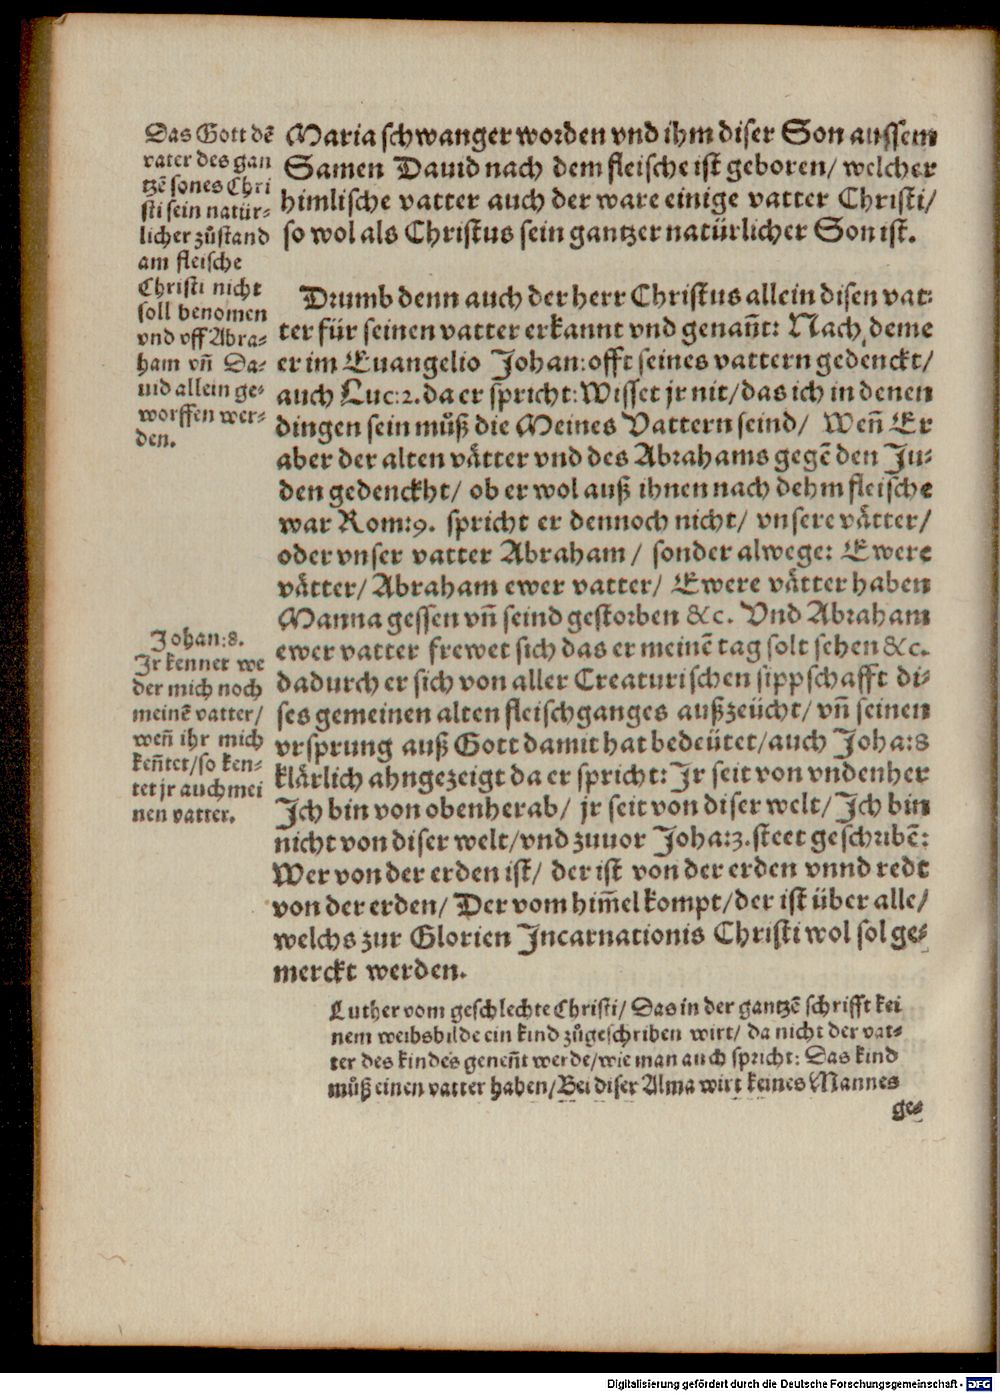 Das Gott dē
vater des gan
tzē sones Chri
sti sein natür-
licher zůstand
am fleische
Christi nicht
soll benomen
vnd vff Abra-
ham vñ Da-
uid allein ge-
worffen wer-
den.
Maria schwanger worden vnd ihm diser Son aussem
Samen Dauid nach dem fleische ist geboren/ welcher
himlische vatter auch der ware einige vatter Christi/
so wol als Christus sein gantzer natürlicher Son ist.
Drumb denn auch der herr Christus allein disen vat-
ter für seinen vatter erkannt vnd genañt: Nach deme
er im Euangelio Johan: offt seines vattern gedenckt/
auch Luc:2. da er spricht: Wisset jr nit/das ich in denen
dingen sein můß die Meines Vattern seind/ Weñ Er
aber der alten våtter vnd des Abrahams gegē den Ju-
den gedenckht/ ob er wol auß ihnen nach dehm fleische
war Rom:9. spricht er dennoch nicht/ vnsere våtter/
oder vnser vatter Abraham/ sonder alwege: Ewere
våtter/ Abraham ewer vatter/ Ewere våtter haben
Manna gessen vñ seind gestorben &c. Vnd Abraham
ewer vatter frewet sich das er meinē tag solt sehen &c.
dadurch er sich von aller Creaturischen sippschafft di-
ses gemeinen alten fleischganges außzeücht/ vñ seinen
vrsprung auß Gott damit hat bedeütet/auch Joha:8
klärlich ahngezeigt da er spricht: Jr seit von vndenher
Jch bin von obenherab/ jr seit von diser welt/ Jch bin
nicht von diser welt/vnd zuuor Joha:3. steet geschribē:
Wer von der erden ist/ der ist von der erden vnnd redt
von der erden/ Der vom him̃el kompt/der ist über alle/
welchs zur Glorien Jncarnationis Christi wol sol ge-
merckt werden.
Johan:8.
Jr kennet we
der mich noch
meinē vatter/
weñ ihr mich
keñtet/so ken-
tet jr auch mei
nen vatter.
Luther vom geschlechte Christi/ Das in der gantzē schrifft kei
nem weibsbilde ein kind zůgeschriben wirt/ da nicht der vat-
ter des kindes geneñt werde/wie man auch spricht: Das kind
můß einen vatter haben/Bei diser Alma wirt keines Mannes
ge-
Digitalisierung gefördert durch die Deutsche Forschungsgemeinschaft - DFG